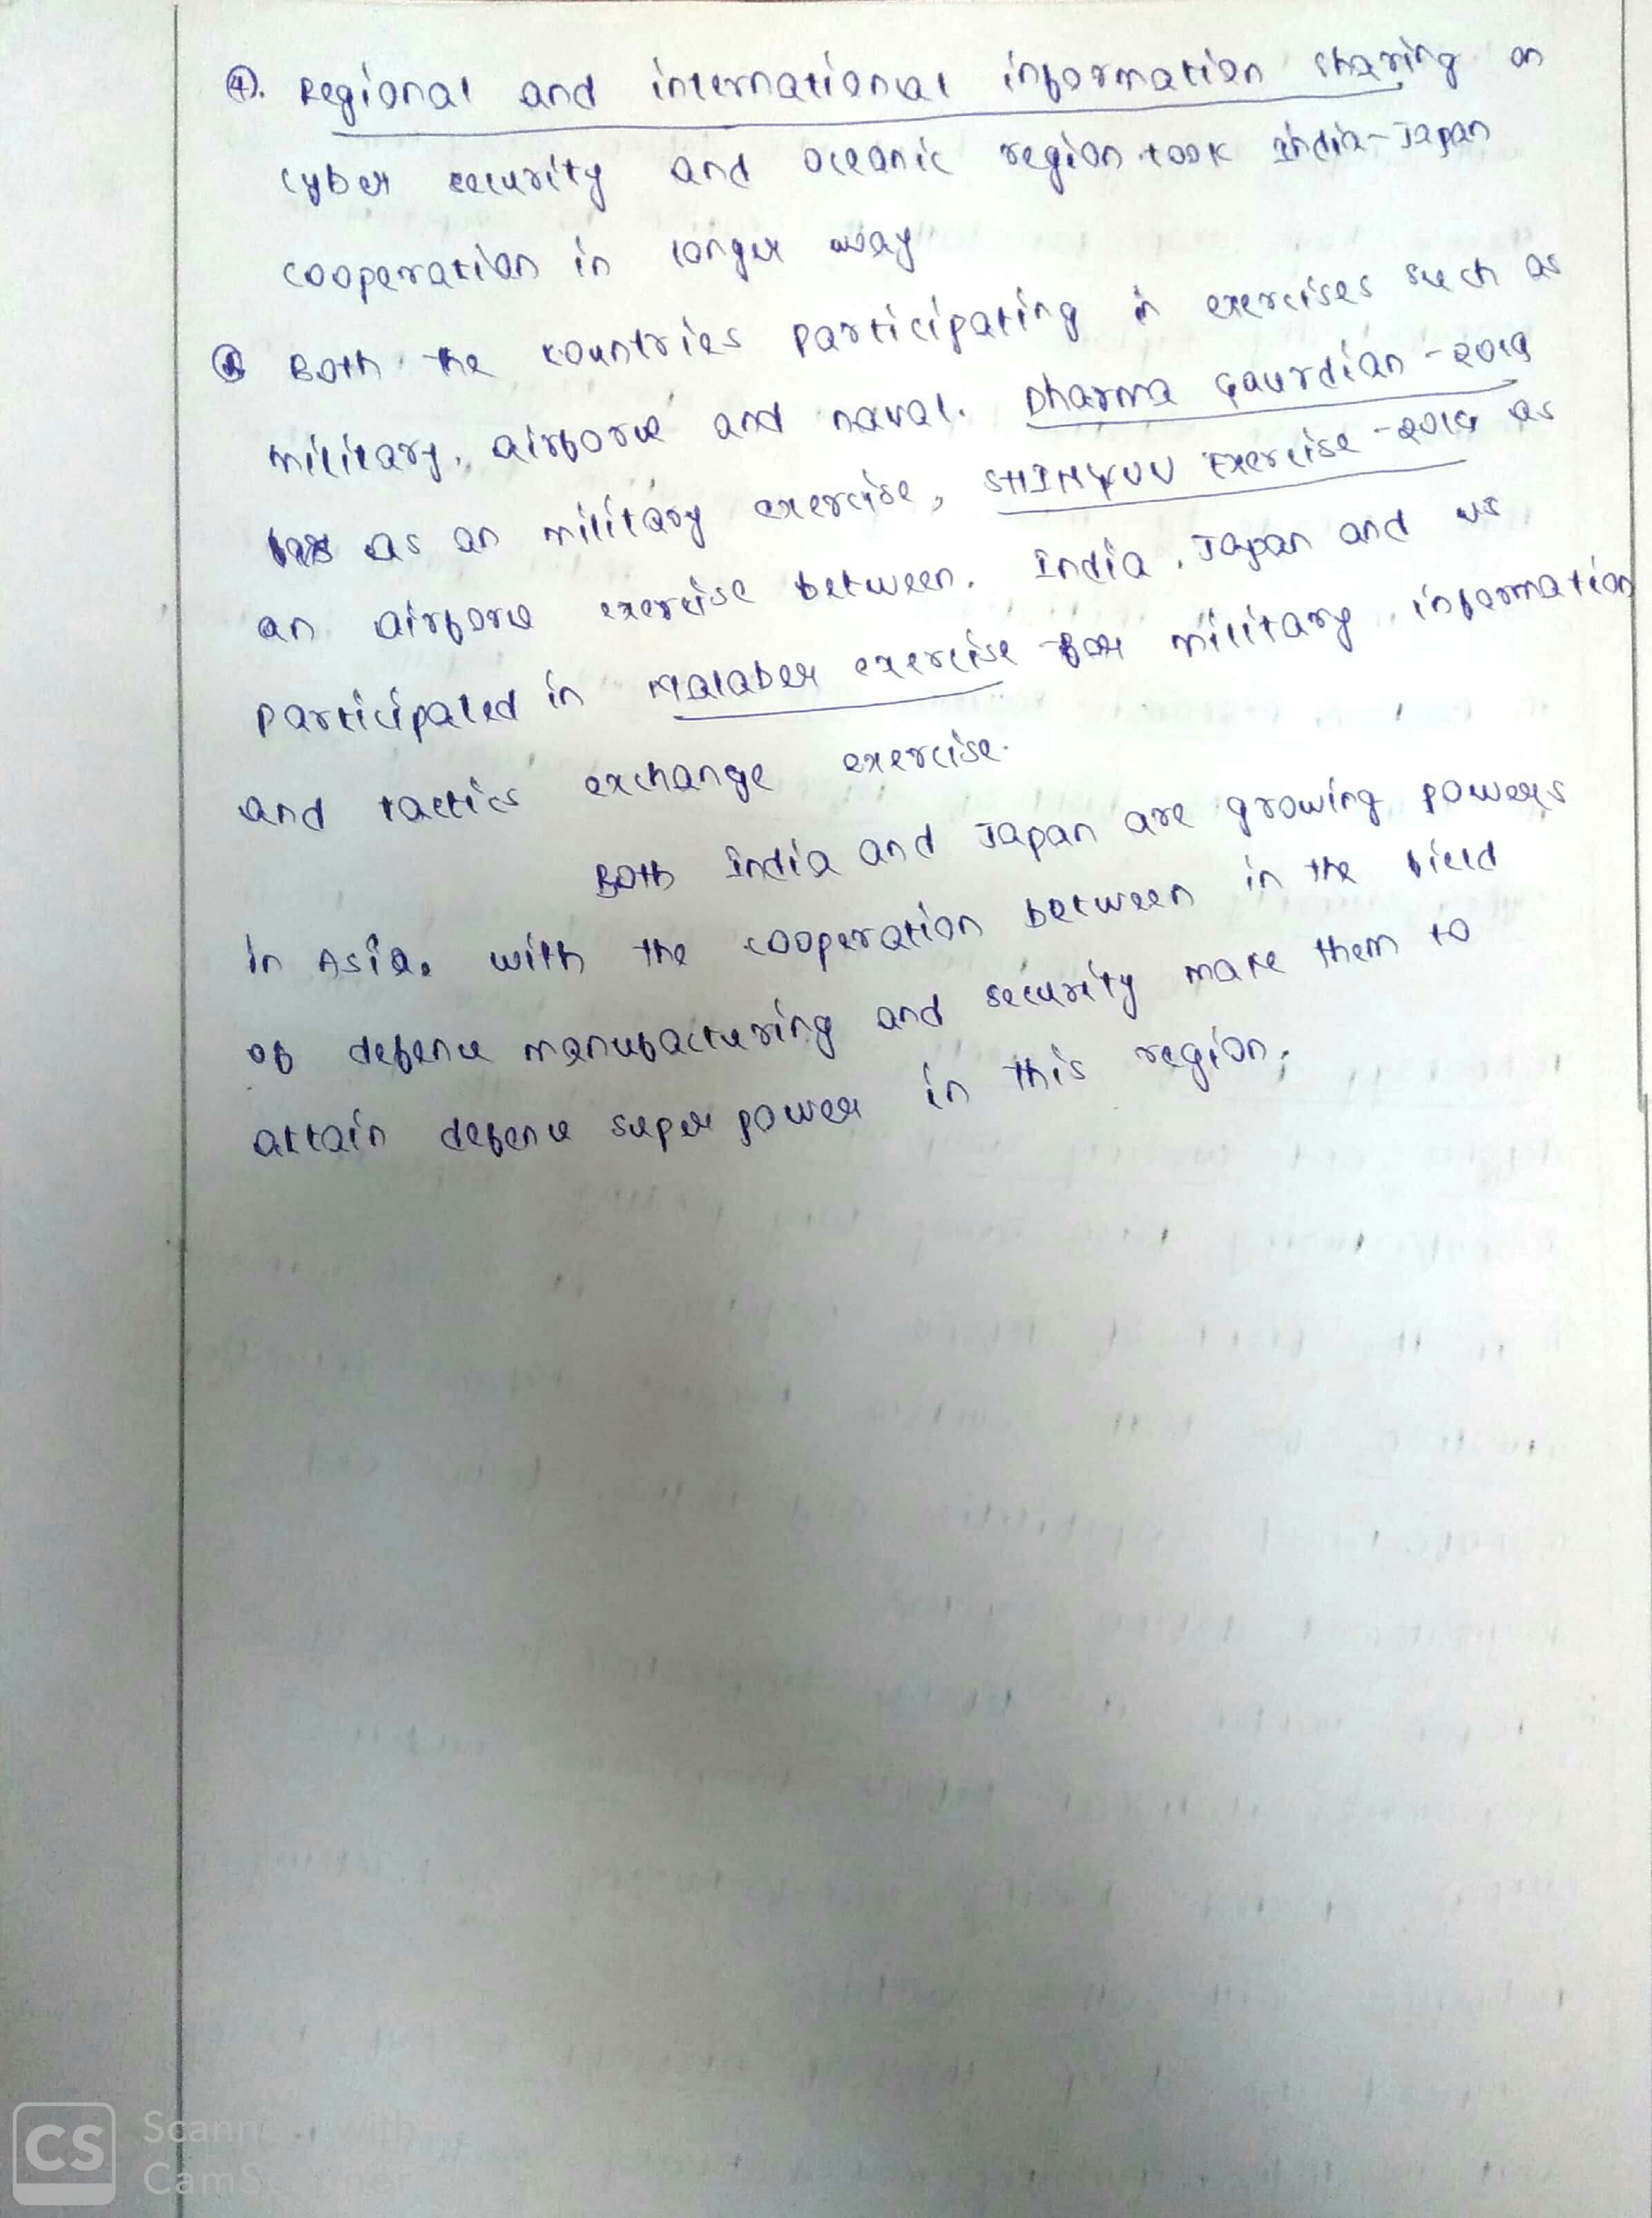 ④. Regional and international information sharing on
cyber security and oceanic region took India-Japan
cooperation in longer way
Both the countries participating in exercises such as
military, airforce and naval. Dharma Gaurdian-2019
as an military exercise, SHINYUU Exercise-2019 as
an airforce exercise between. India, Japan and US
participated in Malaber exercise for military information
and tactics exchange exercise.
Both India and Japan are growing powers
in Asia. with the cooperation between in the field
of defence manufacturing and security make them to
attain defence super power in this region.
CS Scanned with
CamScanner